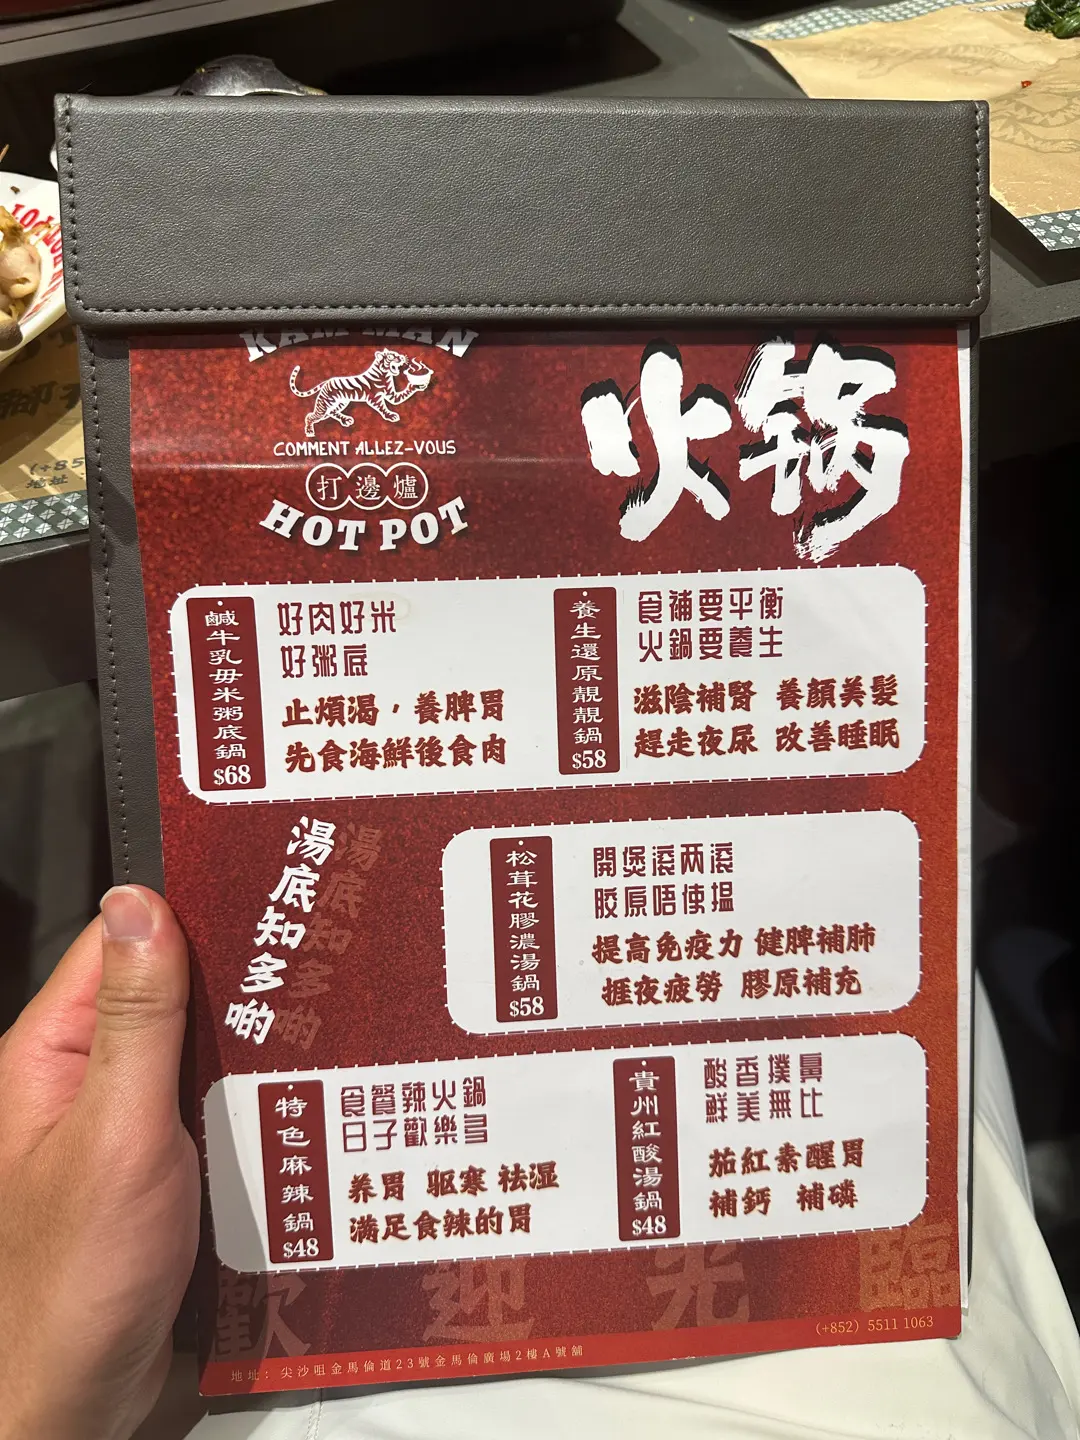 KAM MAN
COMMENT ALLEZ-VOUS
打邊爐
HOT POT
火锅
鹹牛乳毋米粥底鍋
$68
好肉好米
好粥底
止煩渴，養脾胃
先食海鮮後食肉
養生還原靚靚鍋
$58
食補要平衡
火鍋要養生
滋陰補腎 養顏美髮
趕走夜尿 改善睡眠
湯底知多啲
松茸花膠濃湯鍋
$58
開煲滾两滾
胶原唔使揾
提高免疫力 健脾補肺
捱夜疲勞 膠原補充
特色麻辣鍋
$48
食餐辣火鍋
日子歡樂多
养胃 驱寒 祛湿
满足食辣的胃
貴州紅酸湯鍋
$48
酸香撲鼻
鮮美無比
茄紅素醒胃
補鈣 補磷
歡迎光臨
(+852) 5511 1063
地址：尖沙咀金馬倫道23號金馬倫廣場2樓A號舖